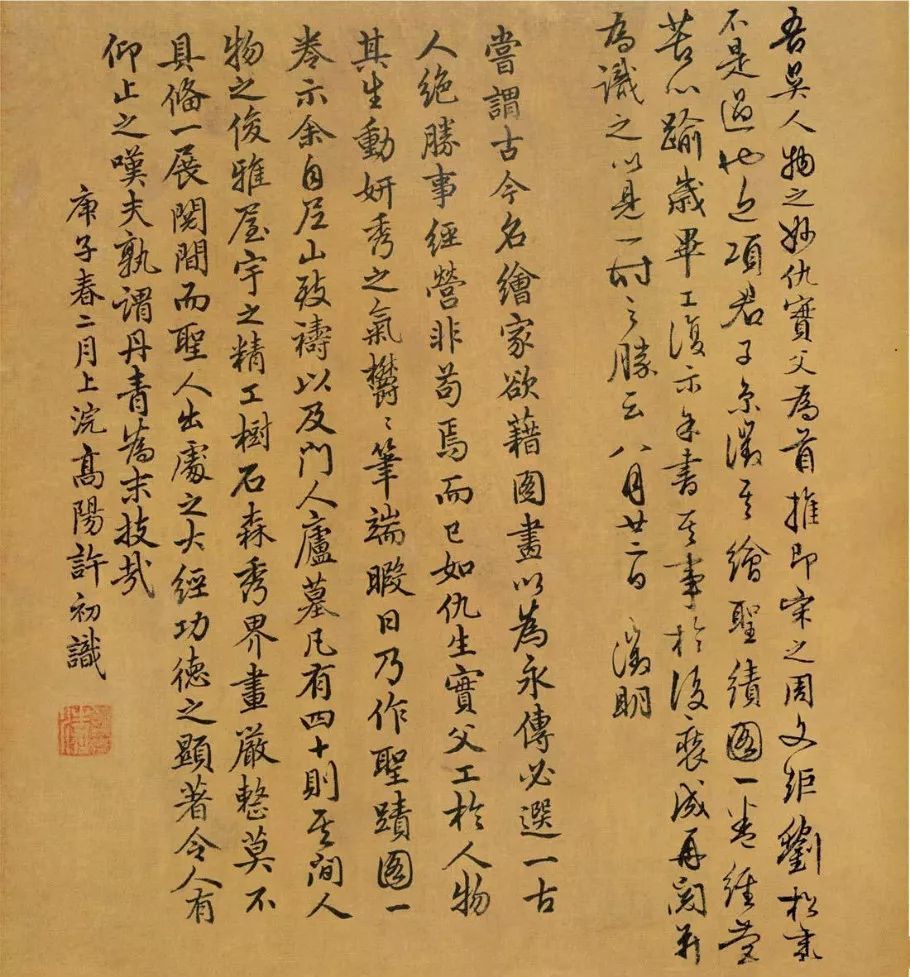 吾吳人物之妙仇實父為首推即宋之周文矩劉松年
不是過也近項君子京徵其繪聖績圖一卷經營
苦心踰歲畢工復示余書其事於後裝成再閱并
為識之以見一時之勝云八月廿二日 徵明
嘗謂古今名繪家欲藉圖畫以為永傳必選一古
人絶勝事經營非苟焉而已如仇生實父工於人物
其生動妍秀之氣欝〻筆端暇日乃作聖蹟圖一
卷示余自尼山致禱以及門人廬墓凡有四十則其間人
物之俊雅屋宇之精工樹石森秀界畫嚴整莫不
具俻一展閱間而聖人出處之大經功德之顯著令人有
仰止之嘆夫孰謂丹青為末技哉
庚子春二月上浣高陽許初識